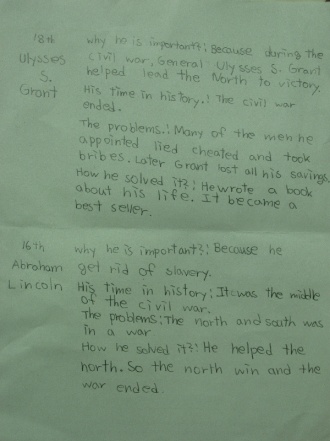 18th
Ulysses
S.
Grant
why he is important?: Because during the
civil war, General Ulysses S. Grant
helped lead the North to victory.
His time in history.: The civil war
ended.
The problems.: Many of the men he
appointed lied cheated and took
bribes. Later Grant lost all his savings.
How he solved it?: He wrote a book
about his life. It became a
best seller.
16th
Abraham
Lincoln
why he is important?: Because he
get rid of slavery.
His time in history: It was the middle
of the civil war.
The problems: The north and south was
in a war
How he solved it?: He helped the
north. So the north win and the
war ended.